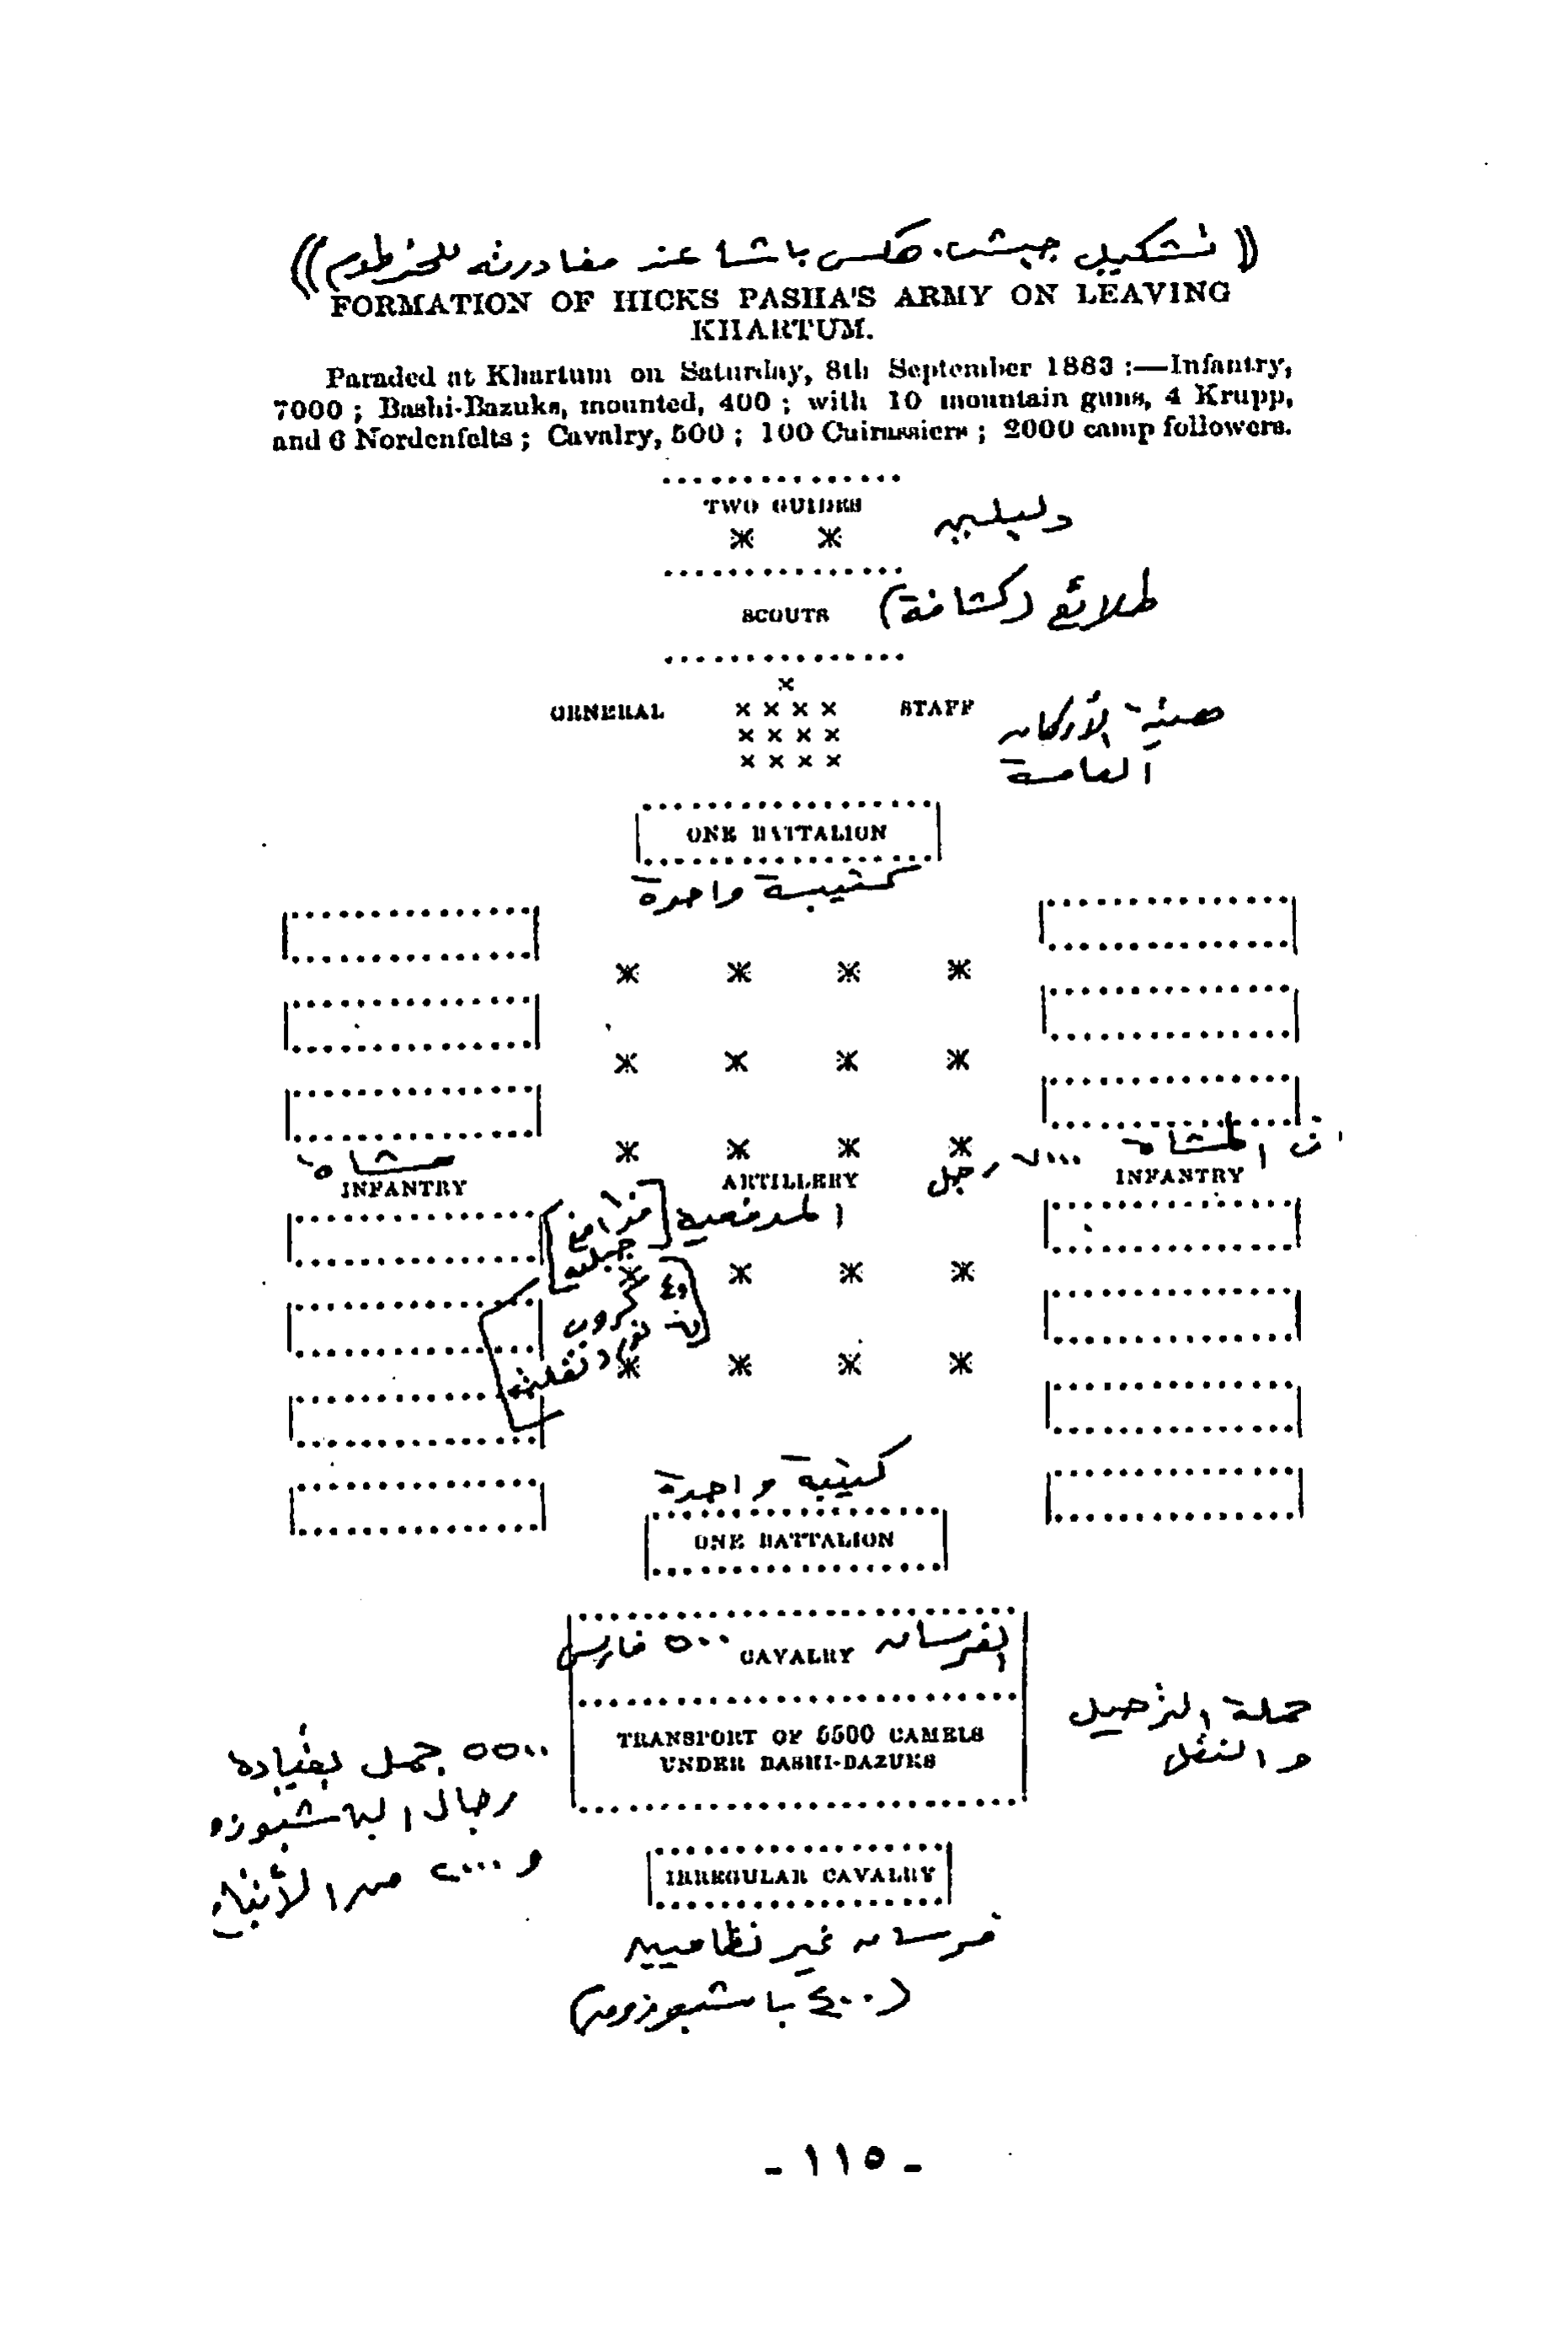 ((تشكيل جيش هكس باشا عند مغادرته للخرطوم))
FORMATION OF HICKS PASHA'S ARMY ON LEAVING
KHARTUM.
Paraded at Khartum on Saturday, 8th September 1883 :—Infantry,
7000 ; Bashi-Bazuks, mounted, 400 ; with 10 mountain guns, 4 Krupp,
and 6 Nordenfelts ; Cavalry, 500 ; 100 Cuirassiers ; 2000 camp followers.
TWO GUIDES
دليلين
SCOUTS طلائع (كشافة)
GENERAL STAFF هيئة الأركان
العامة
ONE BATTALION
كتيبة واحدة
مشاة
المشاة
رجل
INFANTRY ARTILLERY INFANTRY
المدفعية
جبلية
و٤ كروب
كتيبة واحدة
ONE BATTALION
الفرسان CAVALRY ٥٠٠ فارس
TRANSPORT OF 5500 CAMELS
UNDER BASHI-BAZUKS
حملة الترحيل
والنقل
٥٥٠٠ جمل بقيادة
رجال الباشبوزق
و ٢٠٠٠ من الأتباع
IRREGULAR CAVALRY
فرسان غير نظاميين
(٤٠٠ باشبوزق)
- ١١٥ -